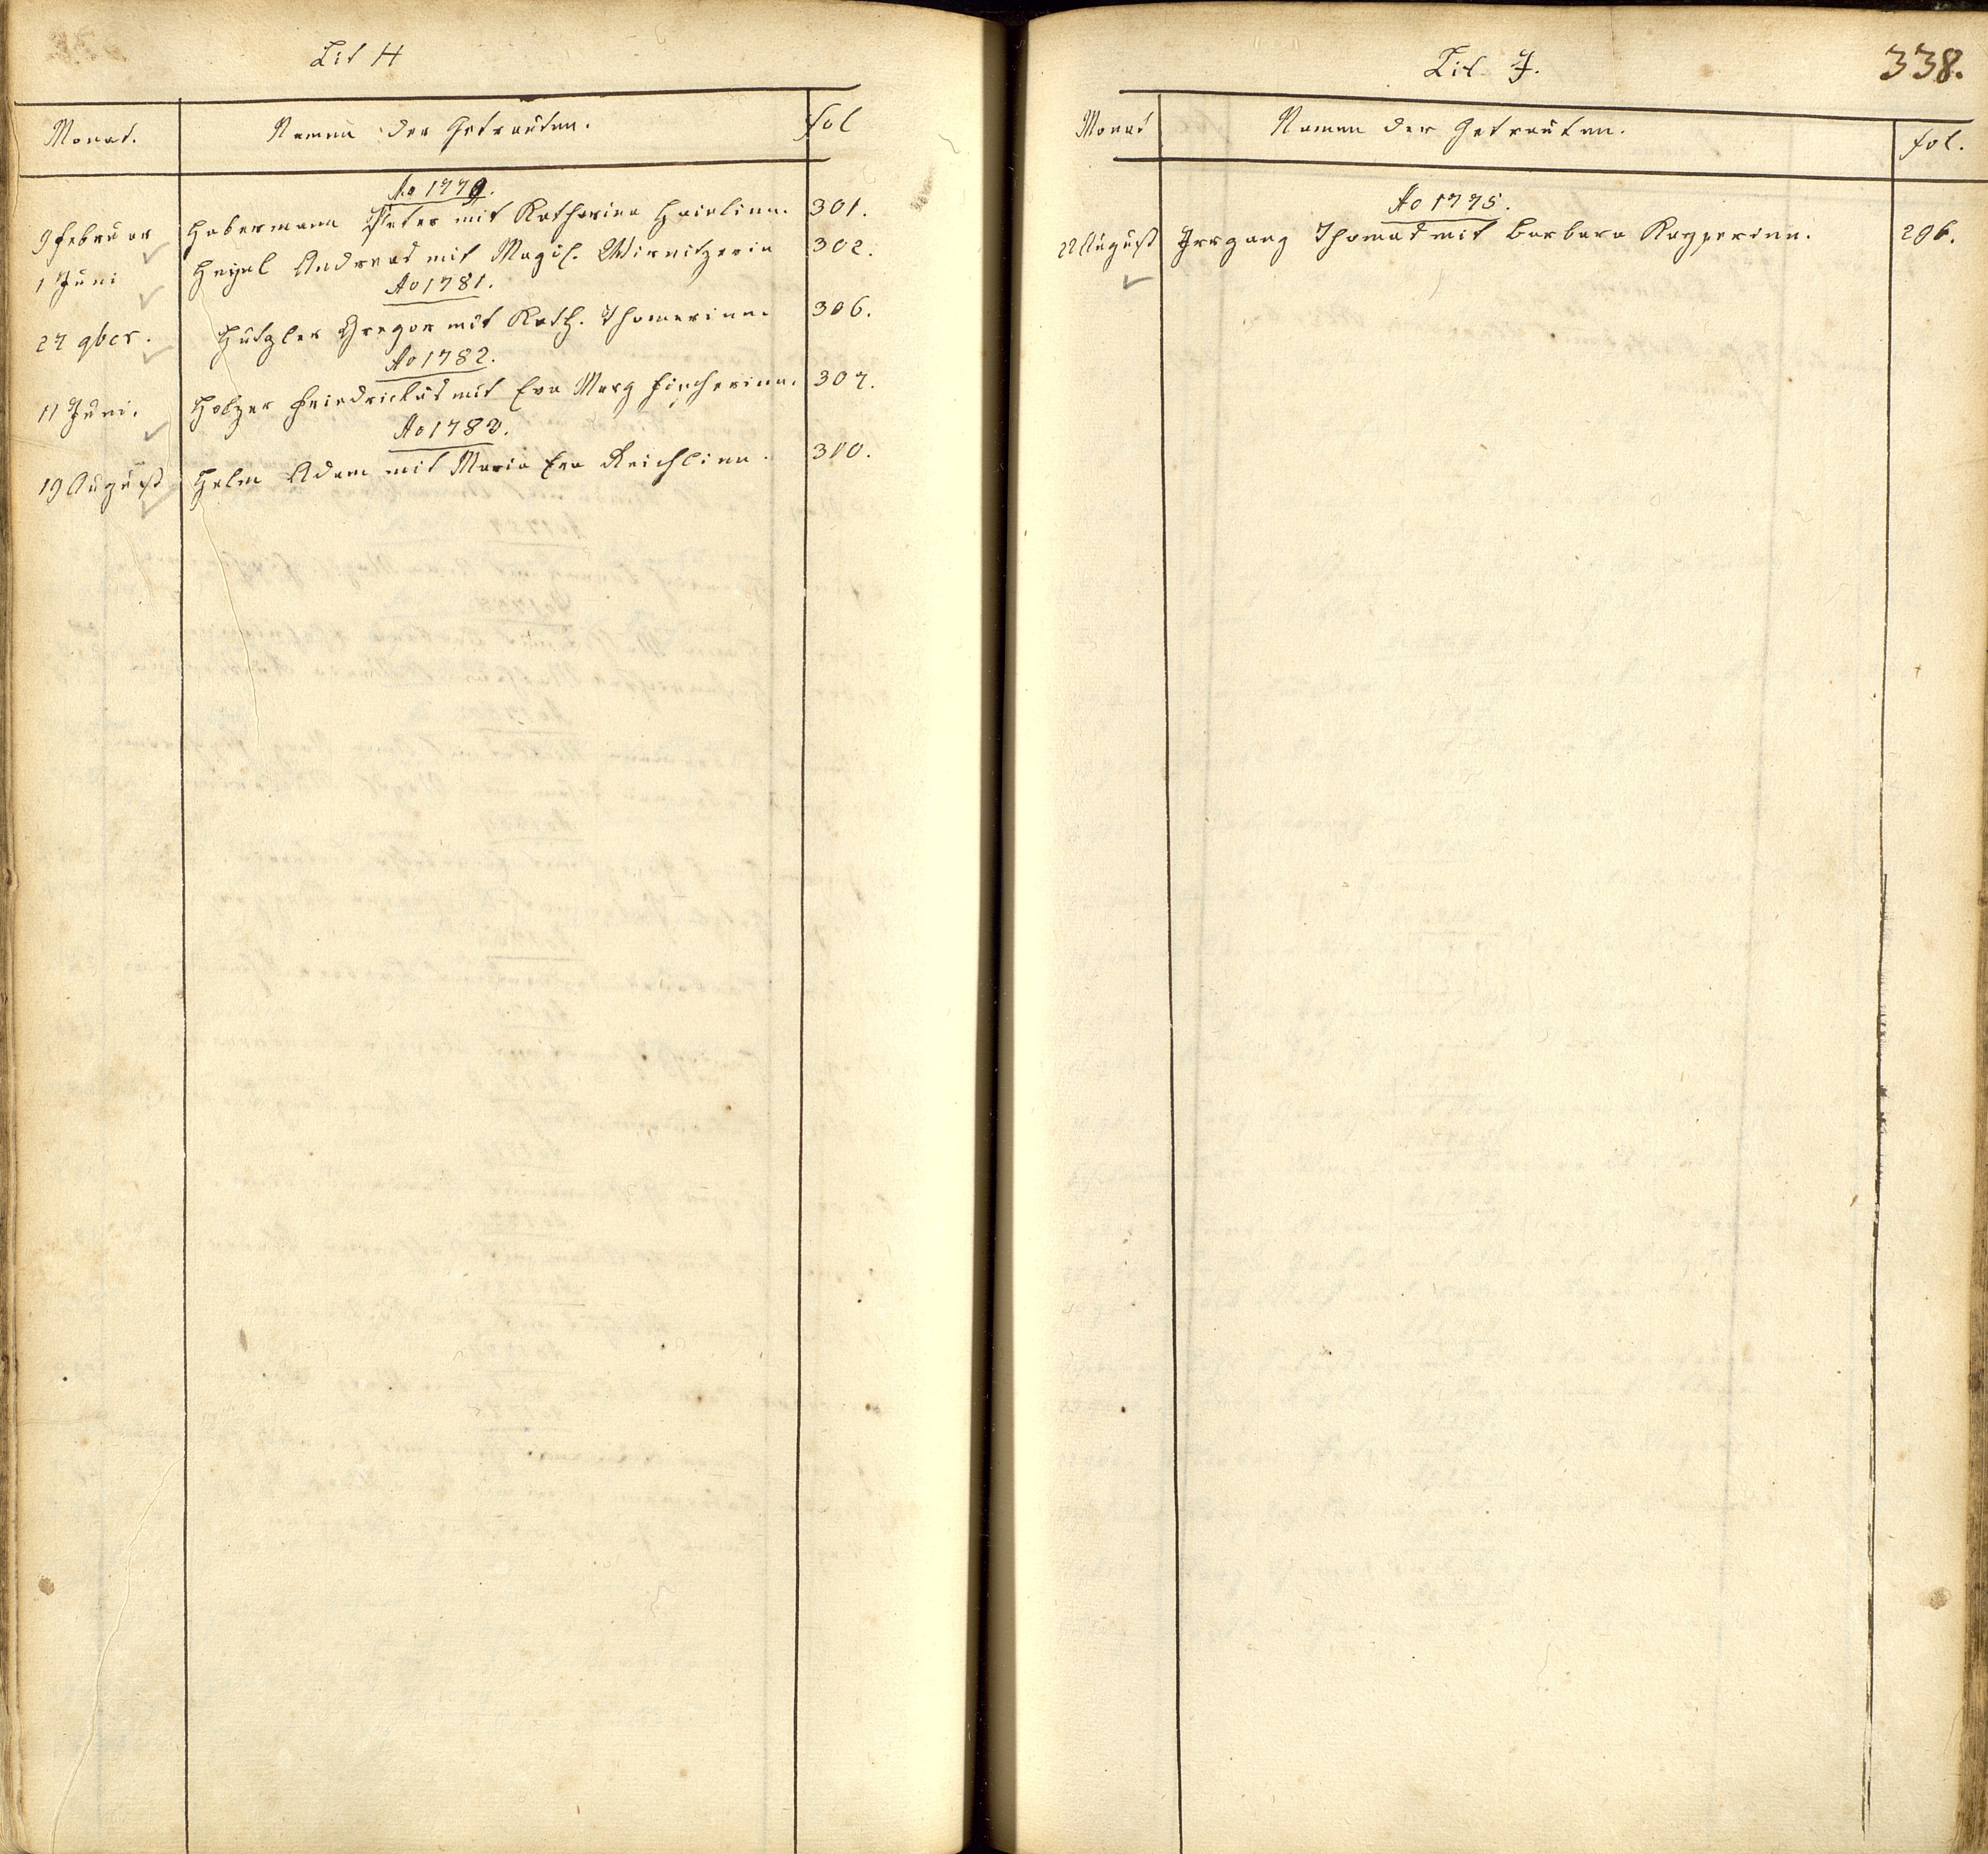 Lit H
Monat. Namen der Getrauten. fol
Ao 1779.
9 Februar Habermann Peter mit Katharina Heinlinn. 301.
1 Juni Heijel Andreas mit Magdl. Wirnitzerin 302.
Ao 1781.
27 9ber. Hutzler Gregor mit Kath. Thomerinn. 306.
Ao 1782.
11 Juni. Holzer Friedrickus mit Eva Marg Fischerinn. 307.
Ao 1783.
19 August Helm Adam mit Maria Eva Reichlinn. 310.
Lit. J. 338.
Monat Namen der Getrauten. fol.
Ao 1775.
22 August Irrgang Thomas mit Barbara Kasperinn. 296.